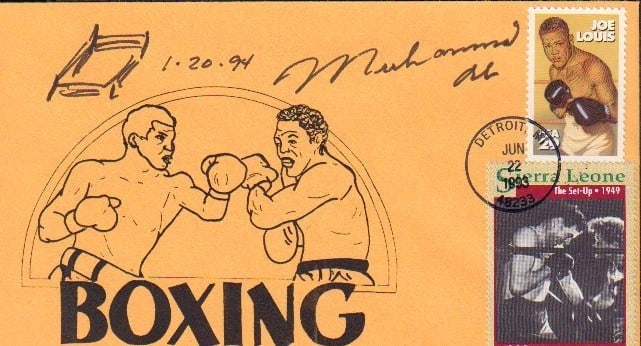 1-20-94
Muhammad
Ali
JOE
LOUIS
USA
DETROIT, MI
JUN
22
1993
48233
Sierra Leone
The Set-Up • 1949
BOXING